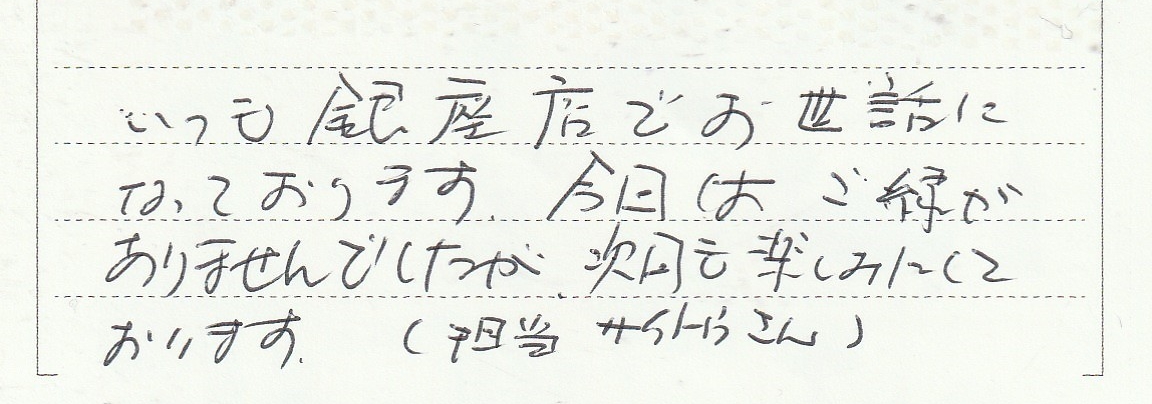 いつも銀座店でお世話に
なっております。今日はご縁が
ありませんでしたが、次回も楽しみにして
おります。(担当 サイトウさん)